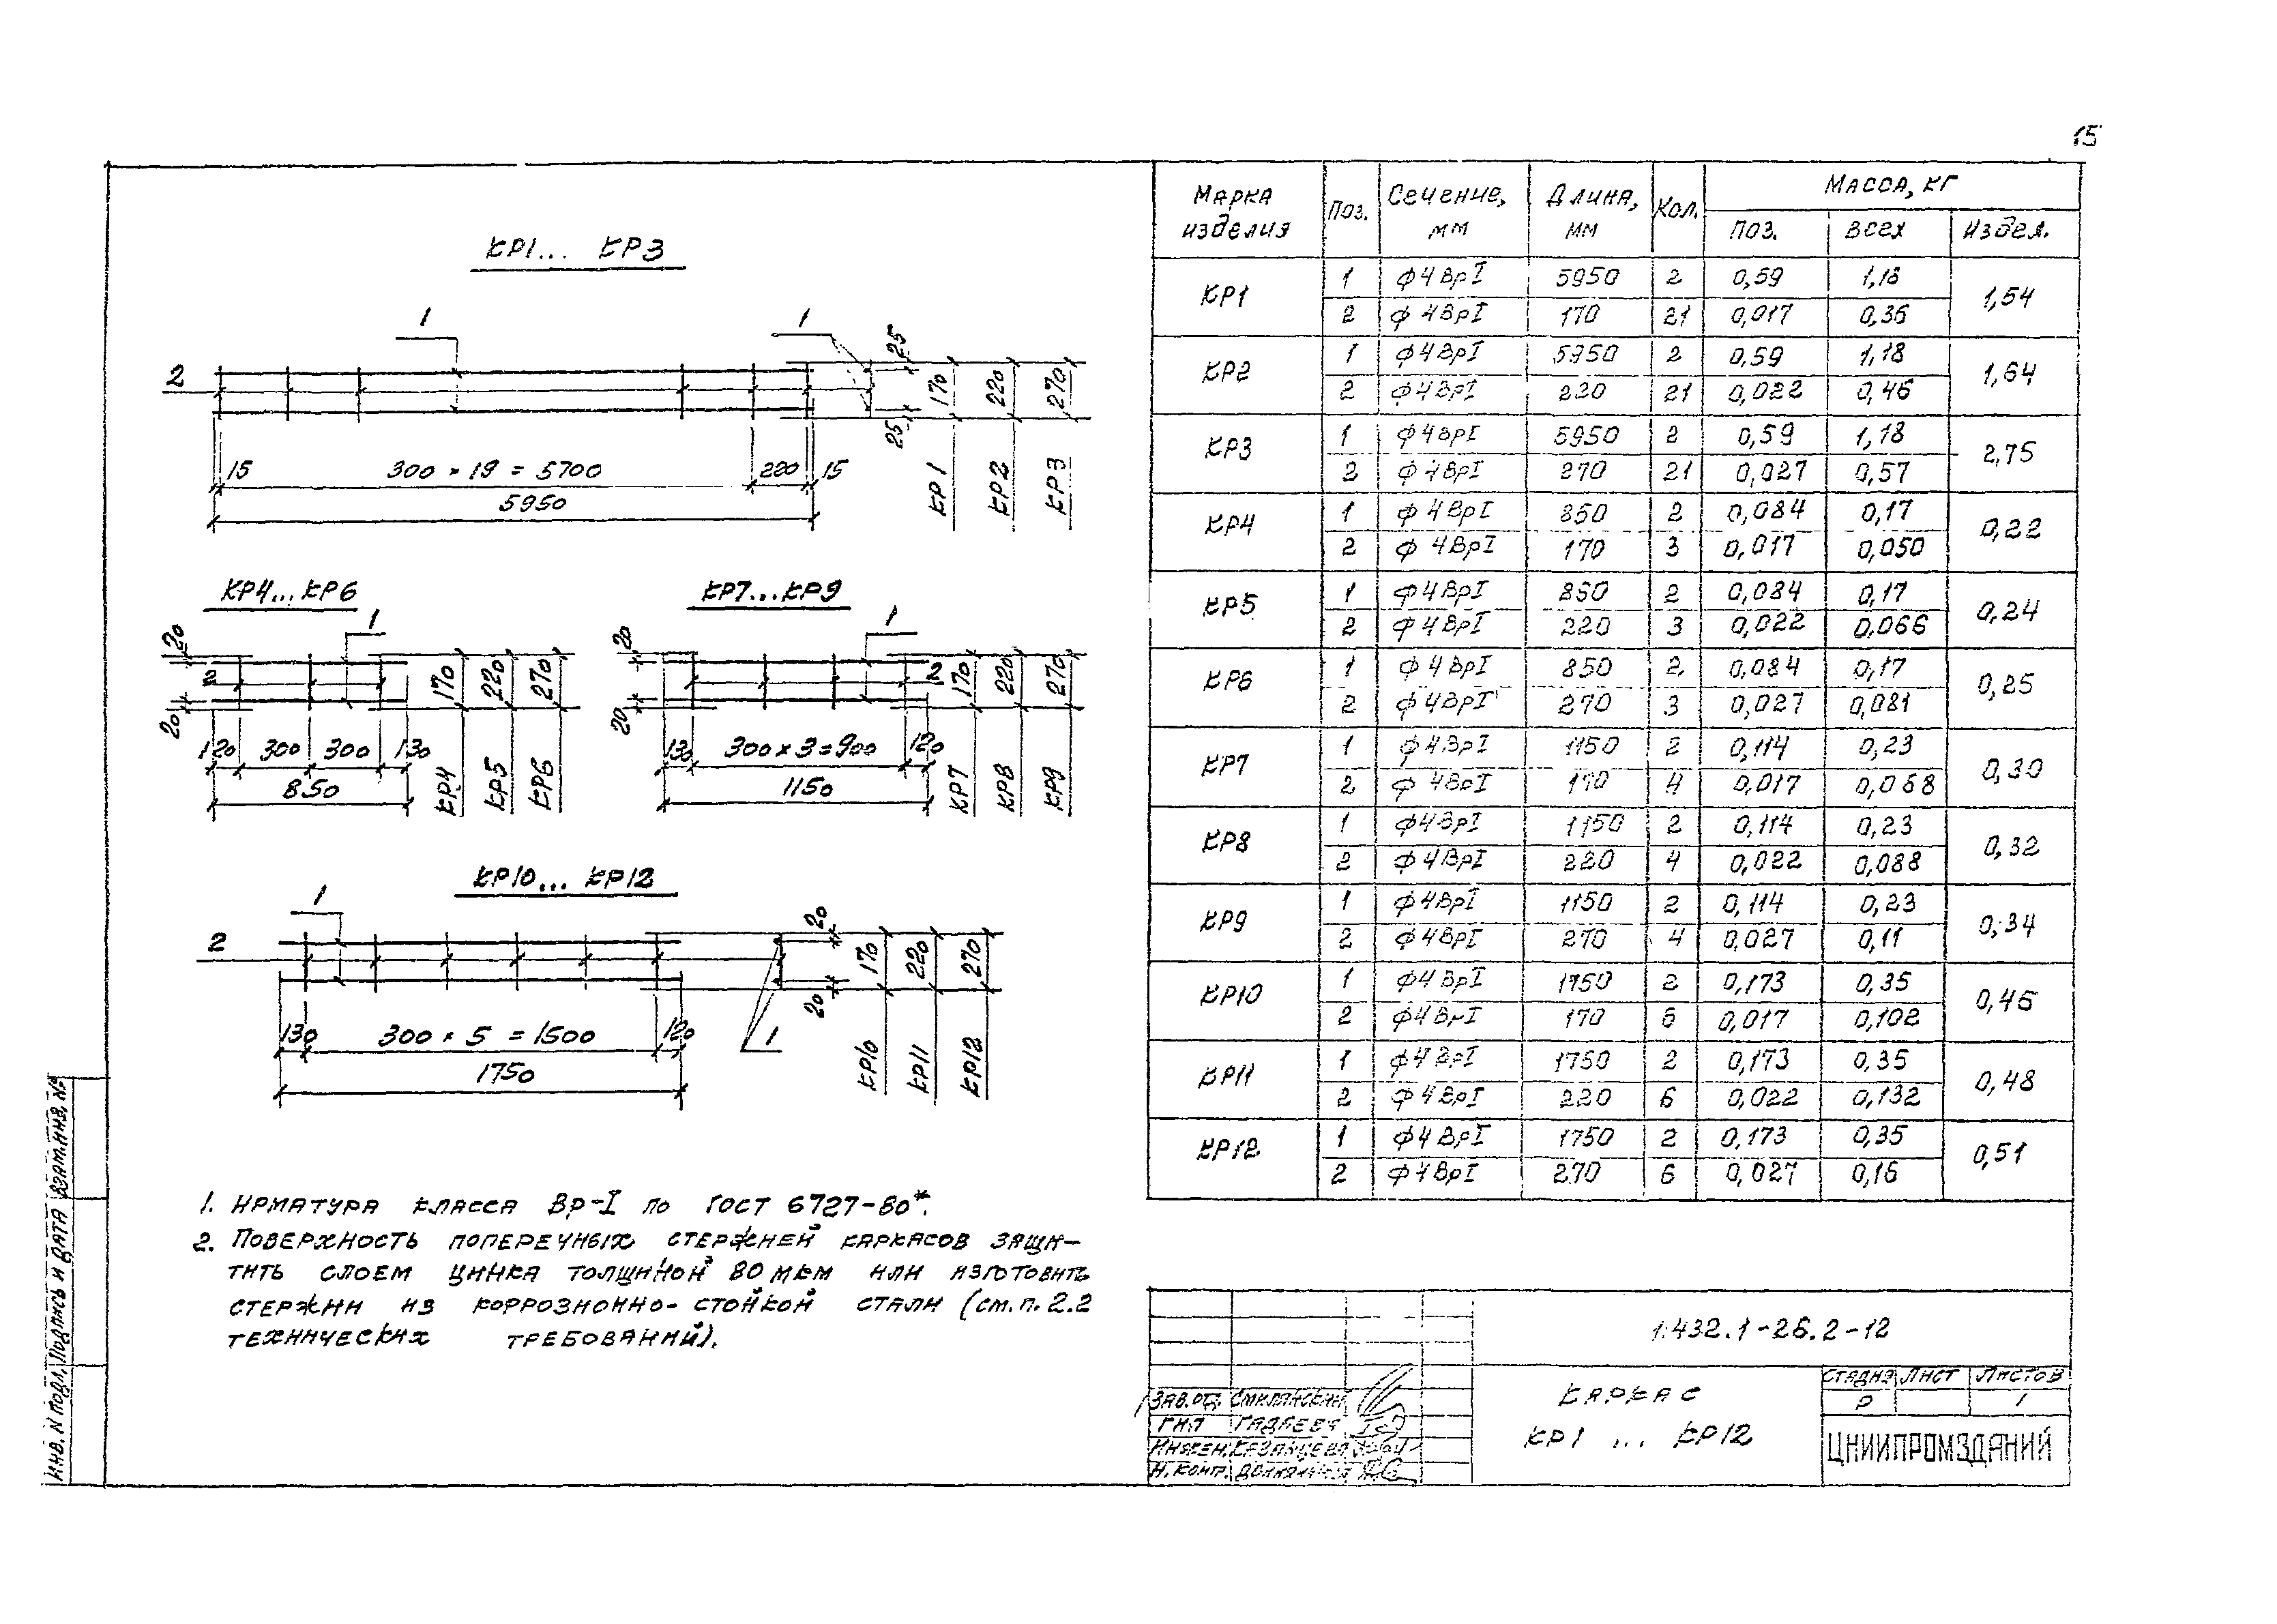 15
КР1... КР3
1
1
2
25
25
170
220
270
15
300 × 19 = 5700
220
15
5950
КР1
КР2
КР3
КР4...КР6
1
20
2
20
170
220
270
120
300
300
130
850
КР4
КР5
КР6
КР7...КР9
1
20
2
20
170
220
270
130
300 × 3 = 900
120
1150
КР7
КР8
КР9
КР10... КР12
1
2
20
20
170
220
270
130
300 × 5 = 1500
120
1
1750
КР10
КР11
КР12
1. Арматура класса Вр-I по ГОСТ 6727-80*.
2. Поверхность поперечных стержней каркасов защи-
тить слоем цинка толщиной 80 мкм или изготовить
стержни из коррозионно-стойкой стали (см. п. 2.2
технических требований).
Марка изделия Поз. Сечение, мм Длина, мм Кол. Масса, кг
поз. всех издел.
КР1 1 ф4ВрI 5950 2 0,59 1,18 1,54
2 ф4ВрI 170 21 0,017 0,36
КР2 1 ф4ВрI 5950 2 0,59 1,18 1,64
2 ф4ВрI 220 21 0,022 0,46
КР3 1 ф4ВрI 5950 2 0,59 1,18 2,75
2 ф4ВрI 270 21 0,027 0,57
КР4 1 ф4ВрI 850 2 0,084 0,17 0,22
2 ф4ВрI 170 3 0,017 0,050
КР5 1 ф4ВрI 850 2 0,084 0,17 0,24
2 ф4ВрI 220 3 0,022 0,066
КР6 1 ф4ВрI 850 2 0,084 0,17 0,25
2 ф4ВрI 270 3 0,027 0,081
КР7 1 ф4ВрI 1150 2 0,114 0,23 0,30
2 ф4ВрI 170 4 0,017 0,068
КР8 1 ф4ВрI 1150 2 0,114 0,23 0,32
2 ф4ВрI 220 4 0,022 0,088
КР9 1 ф4ВрI 1150 2 0,114 0,23 0,34
2 ф4ВрI 270 4 0,027 0,11
КР10 1 ф4ВрI 1750 2 0,173 0,35 0,45
2 ф4ВрI 170 6 0,017 0,102
КР11 1 ф4ВрI 1750 2 0,173 0,35 0,48
2 ф4ВрI 220 6 0,022 0,132
КР12 1 ф4ВрI 1750 2 0,173 0,35 0,51
2 ф4ВрI 270 6 0,027 0,16
1.432.1-26.2-12
Зав.отд. Смилянский
ГИП Гадаева
Инжен. Казанцева
Н.контр.
Каркас
КР1 ... КР12
Стадия Лист Листов
Р 1
ЦНИИПРОМЗДАНИЙ
Инв. N подл. Подпись и дата Взам.инв. N